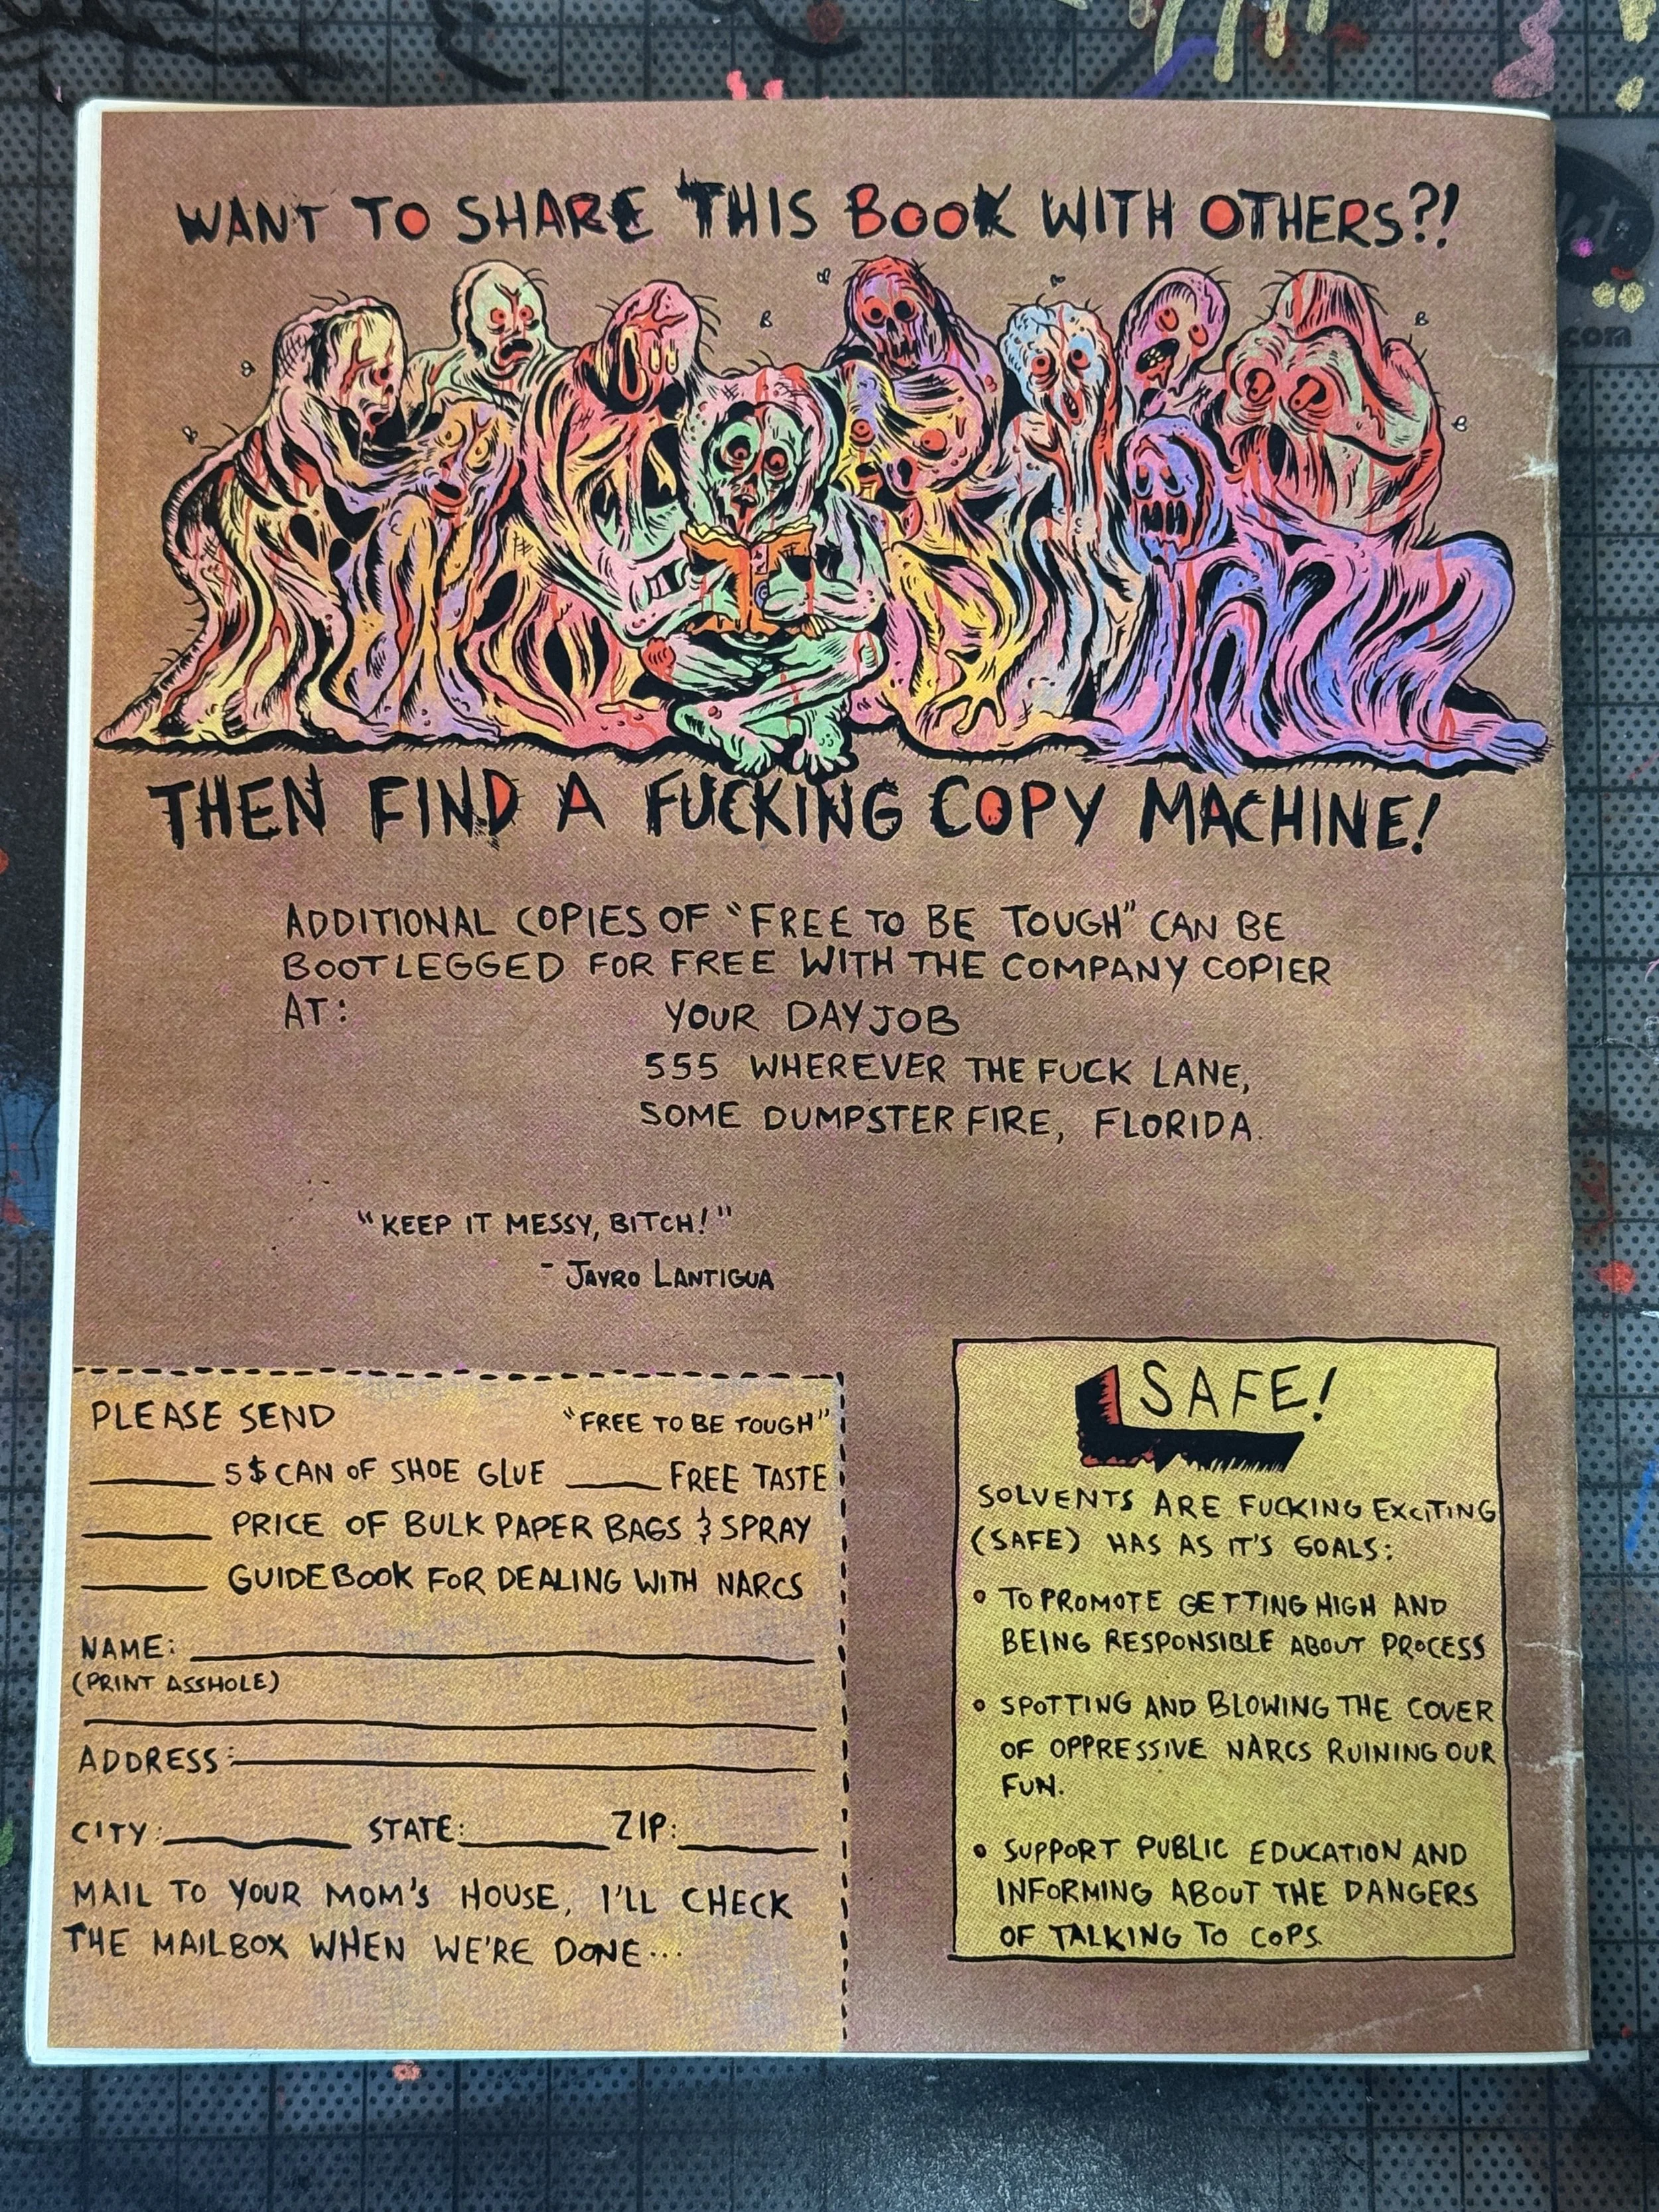 WANT TO SHARE THIS BOOK WITH OTHERS?!
THEN FIND A FUCKING COPY MACHINE!
ADDITIONAL COPIES OF "FREE TO BE TOUGH" CAN BE
BOOTLEGGED FOR FREE WITH THE COMPANY COPIER
AT:
YOUR DAY JOB
555 WHEREVER THE FUCK LANE,
SOME DUMPSTER FIRE, FLORIDA.
"KEEP IT MESSY, BITCH!"
- JAYRO LANTIGUA
PLEASE SEND "FREE TO BE TOUGH"
5$ CAN OF SHOE GLUE FREE TASTE
PRICE OF BULK PAPER BAGS & SPRAY
GUIDEBOOK FOR DEALING WITH NARCS
NAME:
(PRINT ASSHOLE)
ADDRESS:
CITY: STATE: ZIP:
MAIL TO YOUR MOM'S HOUSE, I'LL CHECK
THE MAILBOX WHEN WE'RE DONE...
SAFE!
SOLVENTS ARE FUCKING EXCITING
(SAFE) HAS AS IT'S GOALS:
• TO PROMOTE GETTING HIGH AND
BEING RESPONSIBLE ABOUT PROCESS
• SPOTTING AND BLOWING THE COVER
OF OPPRESSIVE NARCS RUINING OUR
FUN.
• SUPPORT PUBLIC EDUCATION AND
INFORMING ABOUT THE DANGERS
OF TALKING TO COPS.
.com